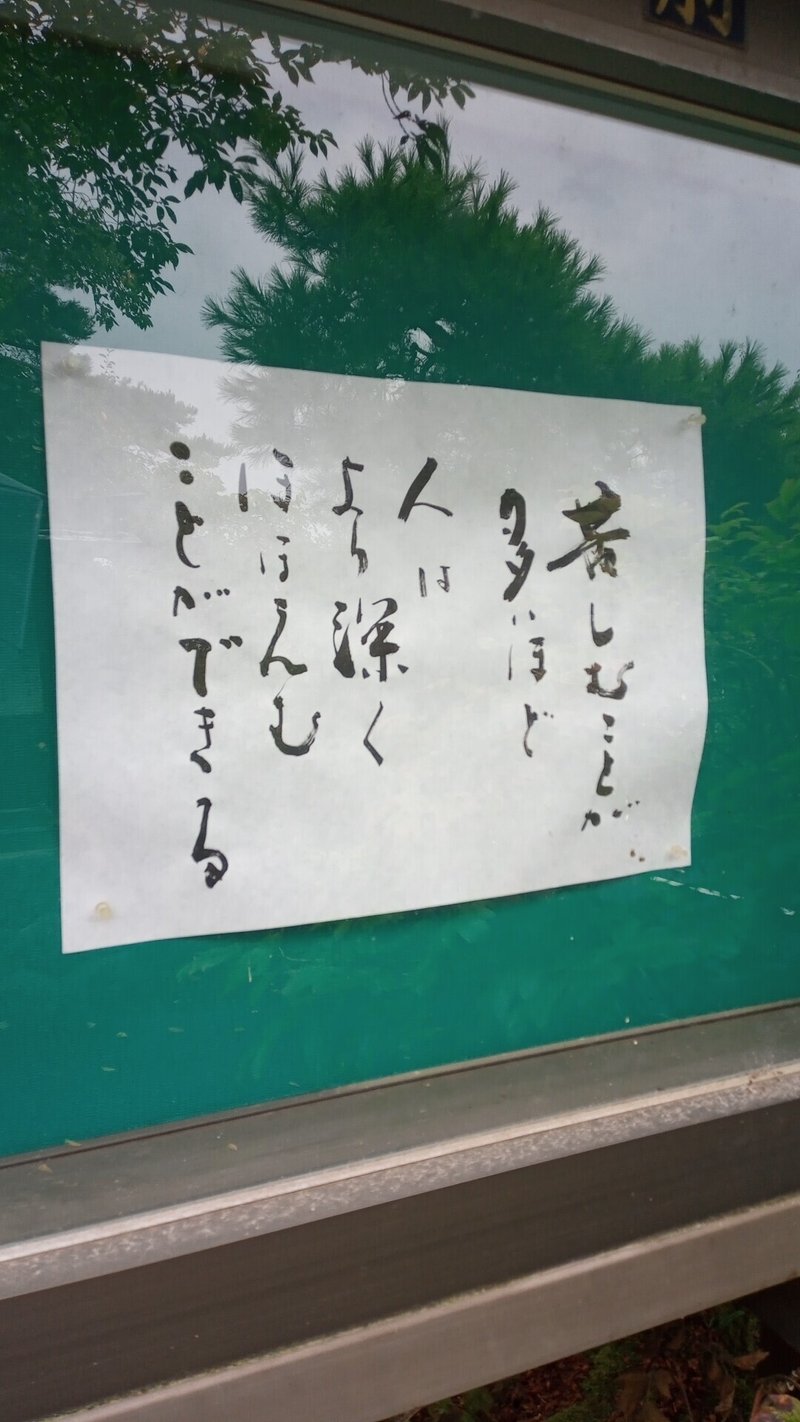 苦しむことが
多いほど
人は
より深く
ほほえむ
ことができる